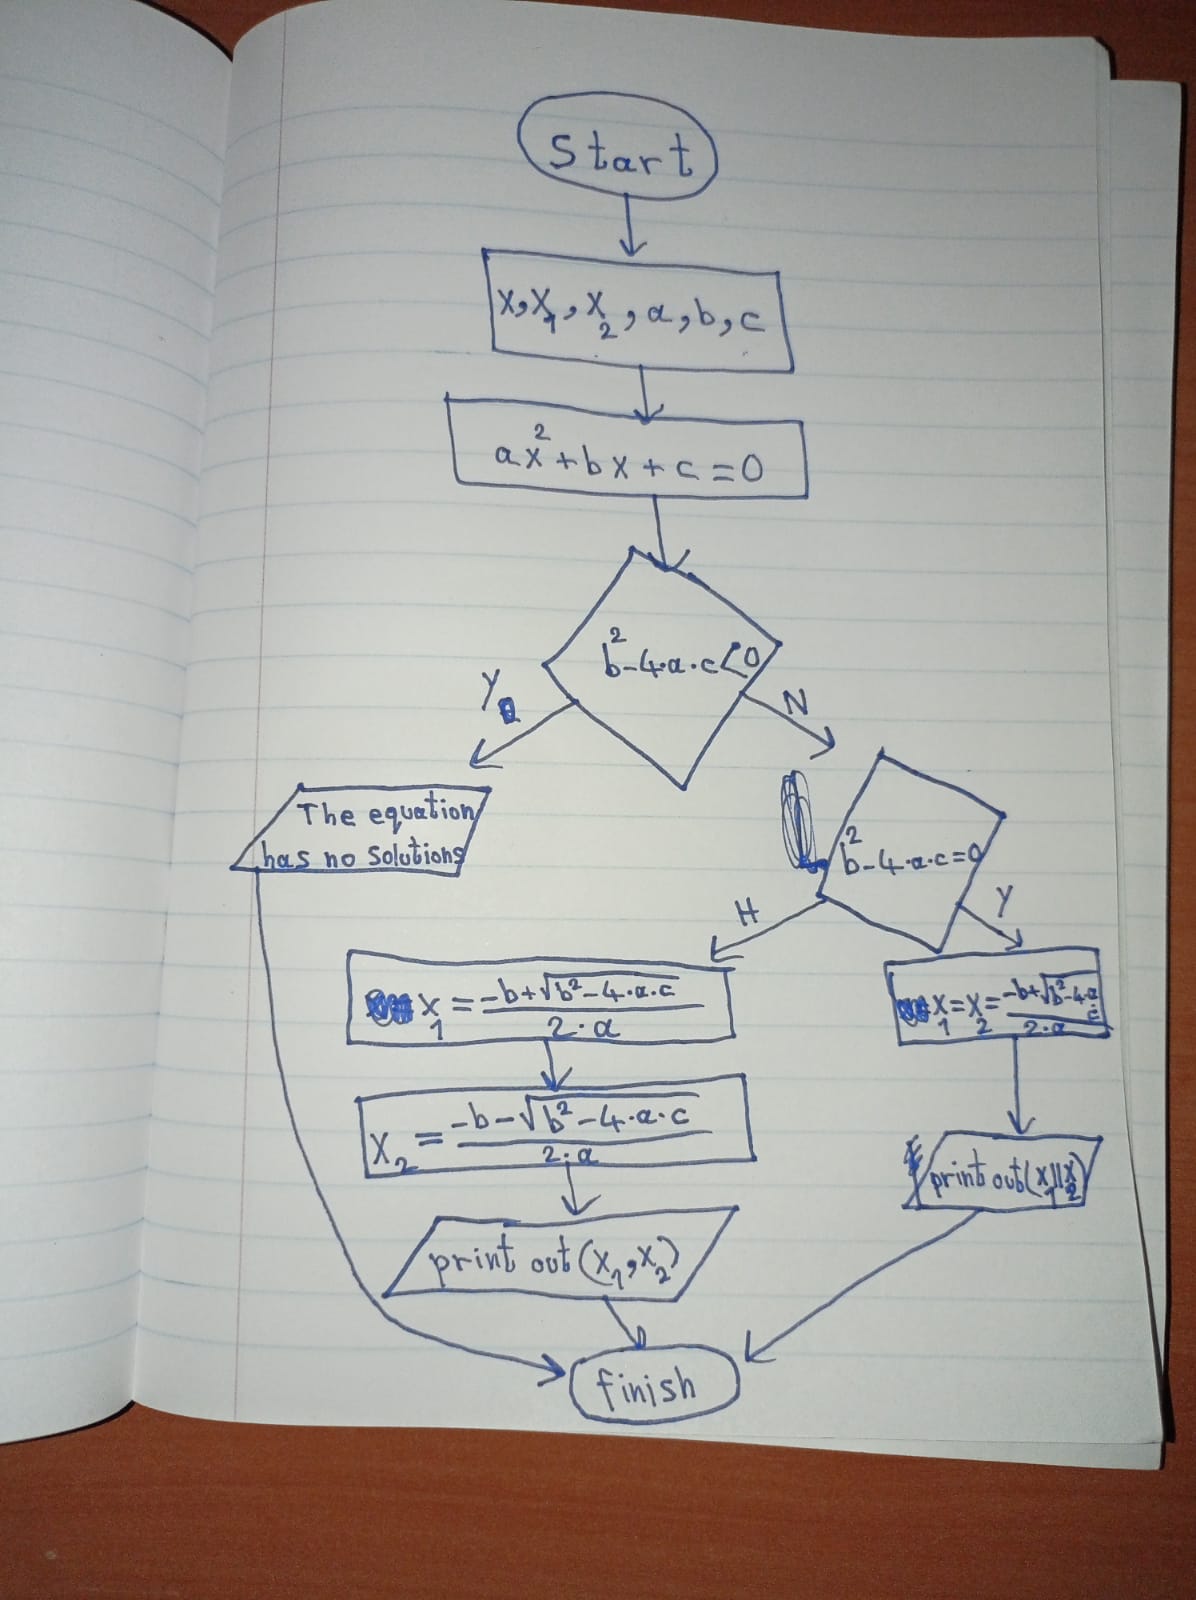 Start
x, x₁, x₂, a, b, c
ax²+bx+c=0
b²-4·a·c<0
Y
N
The equation
has no solutions
b²-4·a·c=0
H
Y
x₁ = (-b+√(b²-4·a·c))/(2·a)
x₁=x₂= (-b+√(b²-4·a·c))/(2·a)
x₂ = (-b-√(b²-4·a·c))/(2·a)
print out(x₁||x₂)
print out(x₁,x₂)
finish